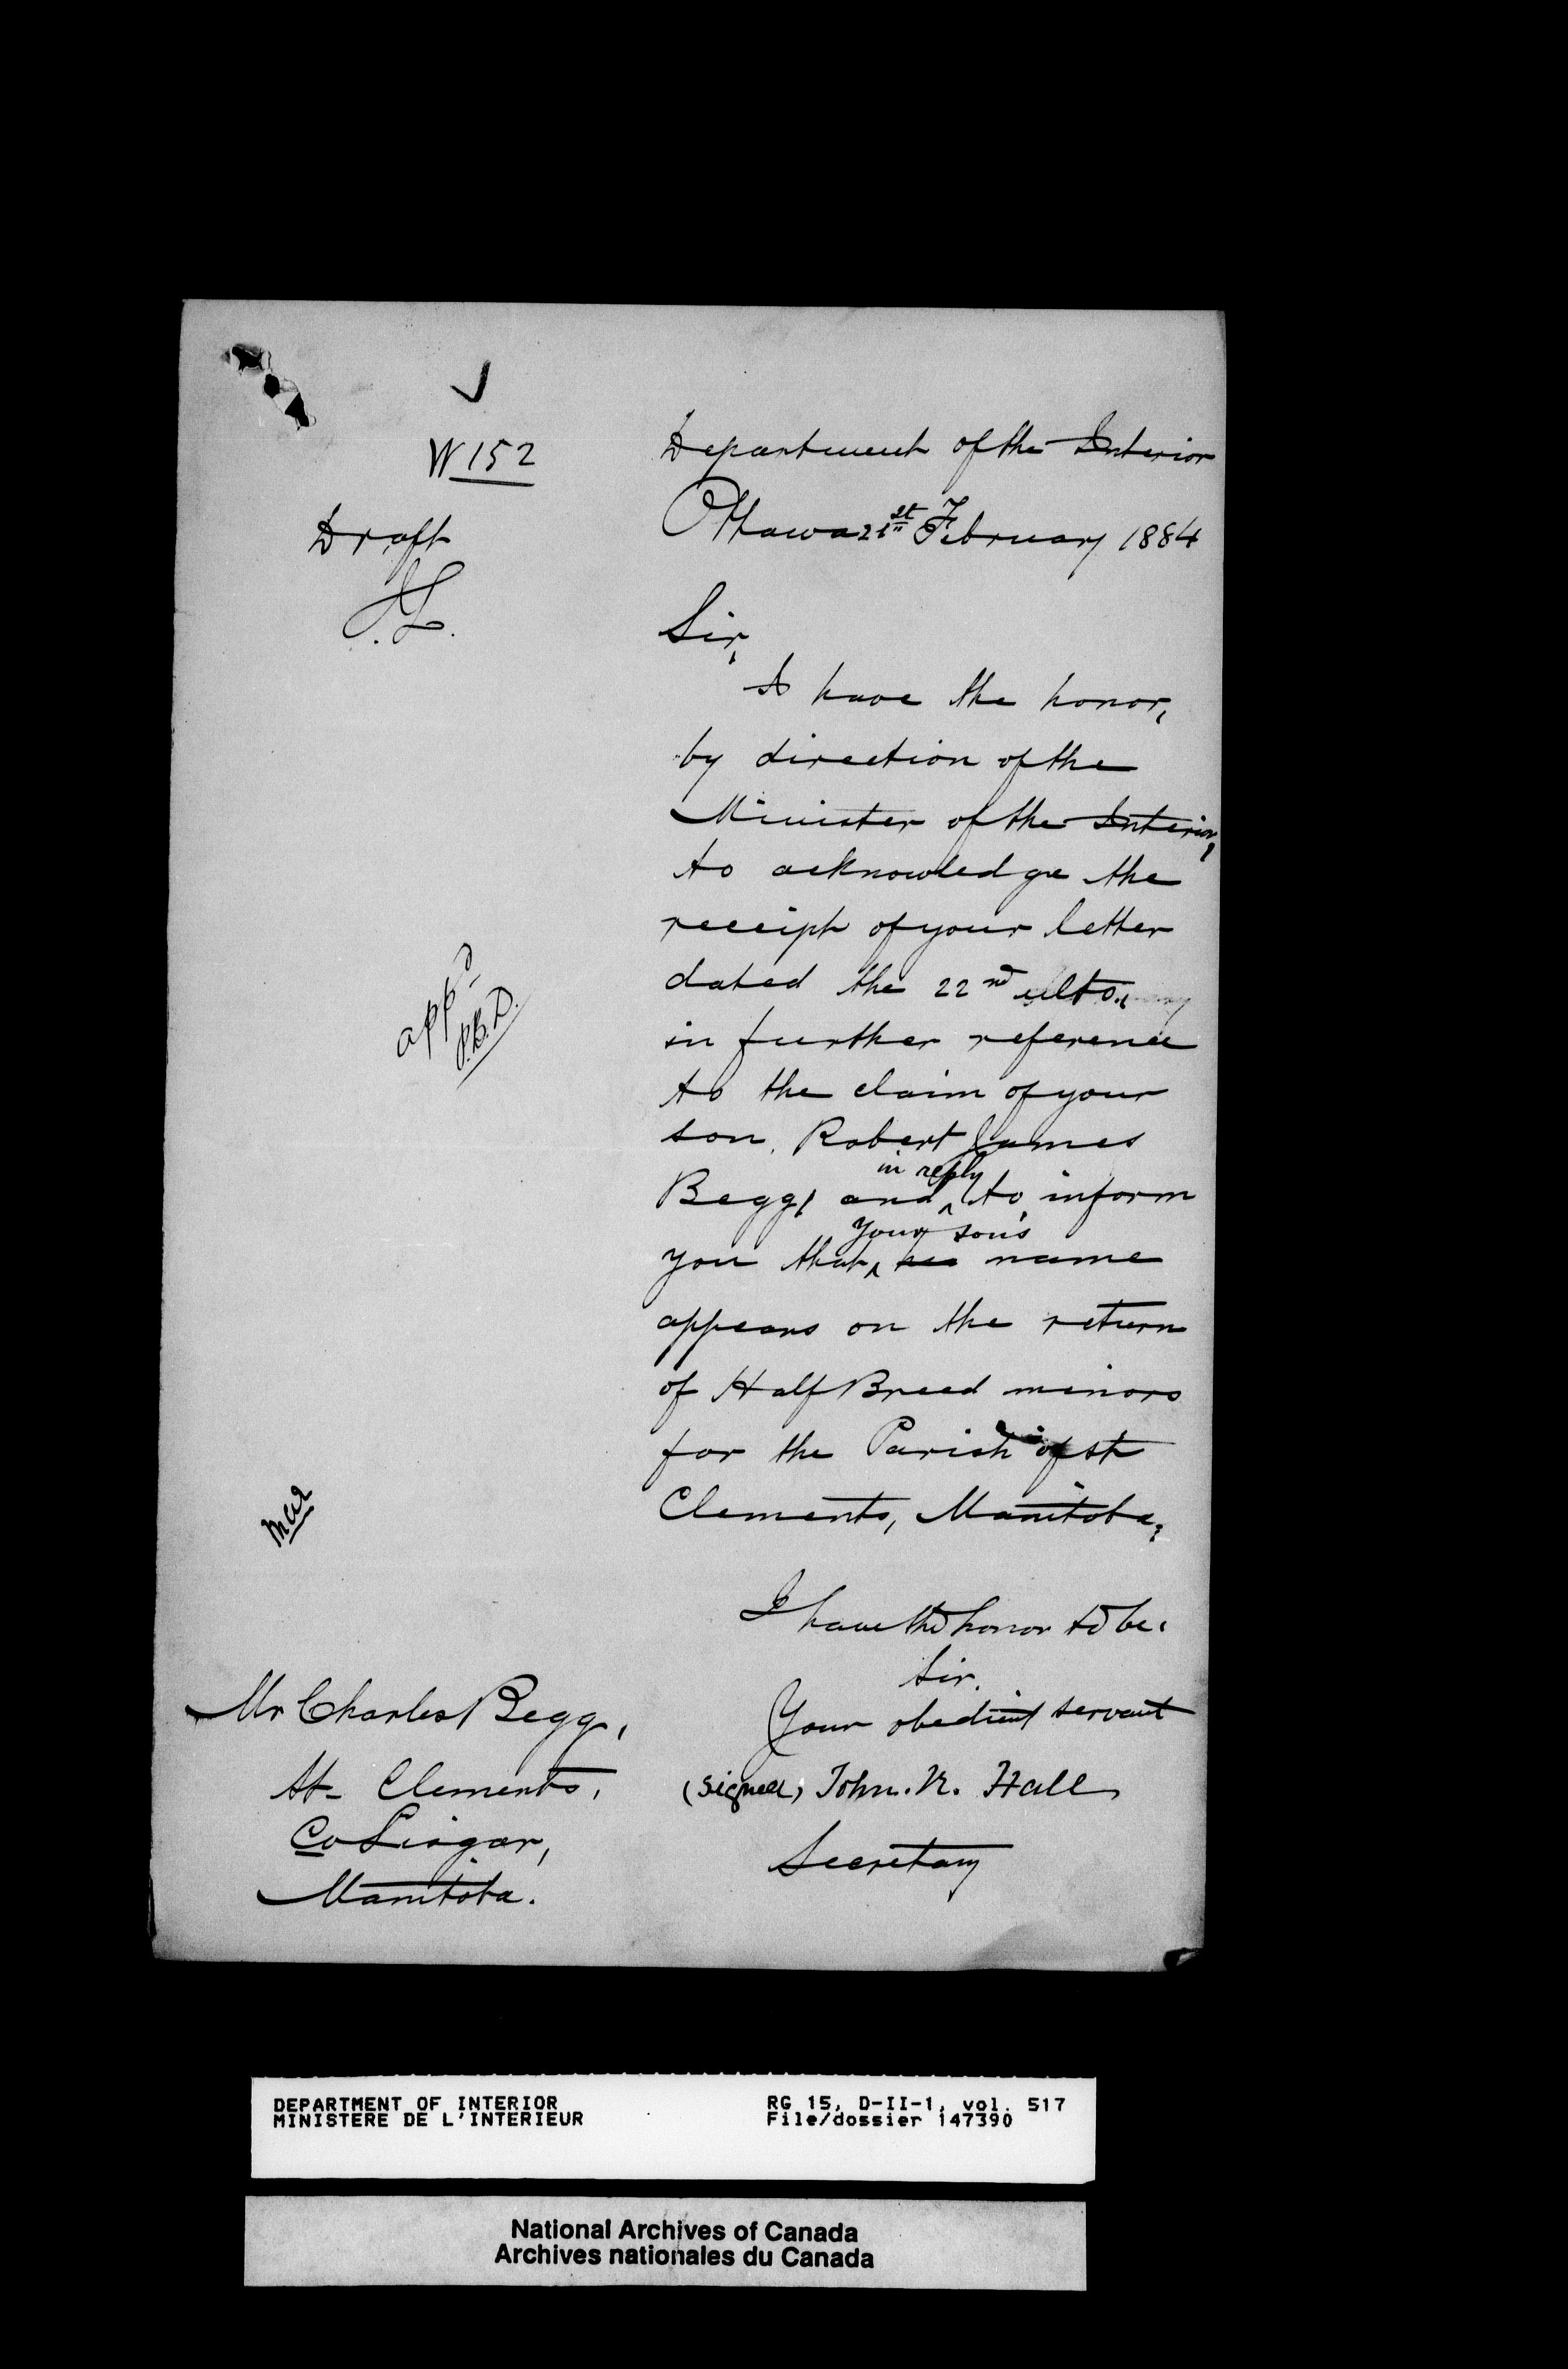 W 152
Draft
J.L.
Department of the Interior
Ottawa 21st February 1884
Sir,
I have the honor,
by direction of the
Minister of the Interior,
to acknowledge the
receipt of your letter
dated the 22nd ulto.,
in further reference
to the claim of your
son, Robert James
in reply
Begg, and ^ to inform
your son's
you that ^ his name
appears on the return
of Half Breed minors
for the Parish of St
Clements, Manitoba.
appd
P.B.D.
I have the honor to be,
Sir.
Your obedient servant
(signed) John. R. Hall
Secretary
Mr Charles Begg,
St. Clements,
Co Lisgar,
Manitoba.
DEPARTMENT OF INTERIOR
MINISTERE DE L'INTERIEUR
RG 15, D-II-1, vol. 517
File/dossier 147390
National Archives of Canada
Archives nationales du Canada